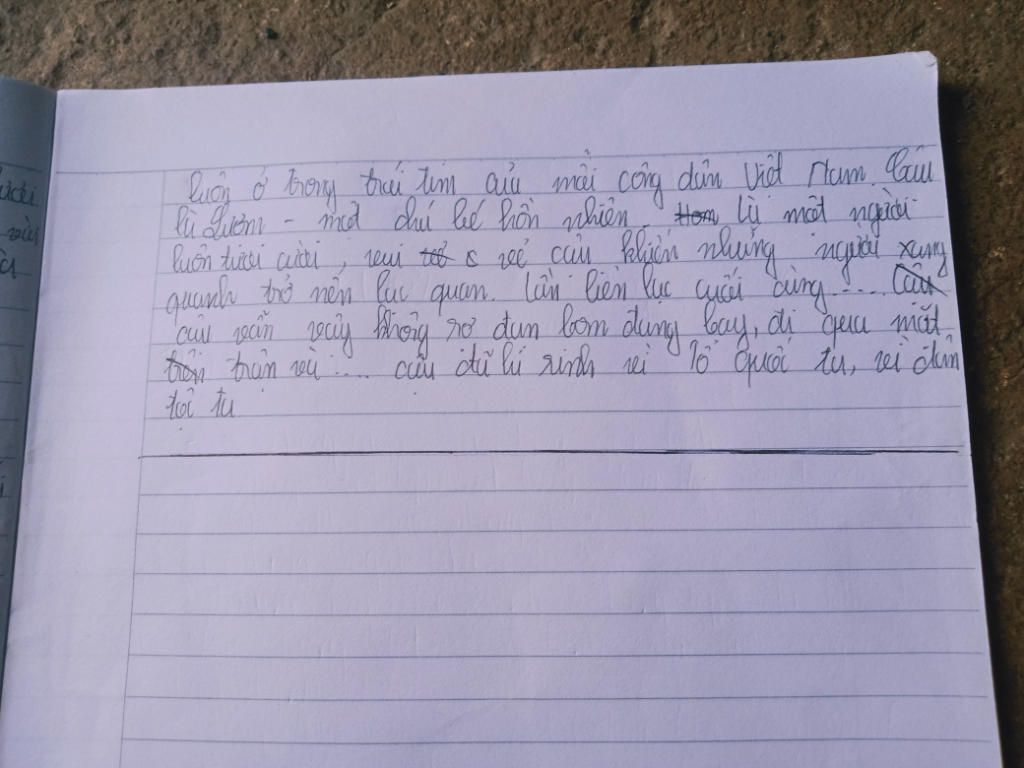 luôn ở trong trái tim của mỗi công dân Việt Nam. Cậu
là Lượm - một chú bé hồn nhiên. là một người
luôn tươi cười, vui vẻ cậu khiến những người xung
quanh trở nên lạc quan. Lần liên lạc cuối cùng....
cậu vẫn vậy không sợ đạn bom đang bay, đi qua mặt
trận và .... cậu đã hi sinh vì Tổ quốc ta, vì dân
tộc ta